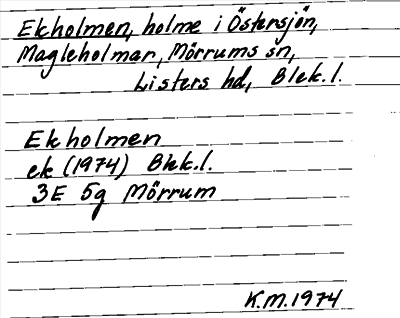 Ekholmen, holme i Östersjön,
Magleholmar, Mörrums sn,
Listers hd, Blek.l.
Ekholmen
ek (1974) Blek.l.
3E 5g Mörrum
K.M.1974